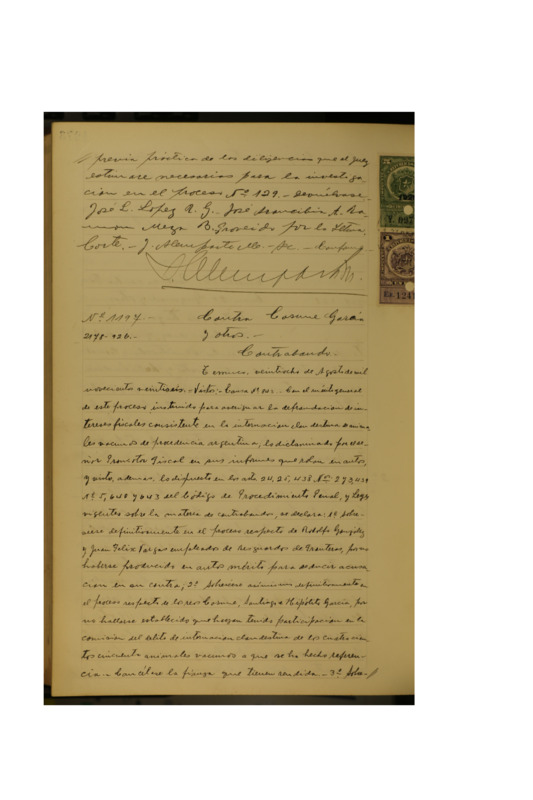 previa práctica de las diligencias que el Juez
estimare necesarias para la investiga-
ción en el proceso Nº 129. - Devuélvase.
José L. Lopez A. G. José A.
Meza B. Proveido por la Iltma.
Corte. - J. Alemparte M. - Sec. - Conforme
J. Alemparte M.
Nº 1197. -
Contra Cosme García
2178-926. -
y otros. -
Contrabando. -
Temuco, veintiocho de Agosto de mil
novecientos veintiseis. - Vistos: - Con el mérito general
de este proceso instruido para averiguar la defraudación de in-
tereses fiscales consistente en la internación clandestina de anima-
les vacunos de procedencia argentina; lo dictaminado por el se-
ñor Promotor Fiscal en sus informes que obran en autos,
y visto, ademas, lo dispuesto en los arts 24, 25, 438 Nos 2 y 3, 439
Nº 5, 640 y 643 del Código de Procedimiento Penal, y leyes
vigentes sobre la materia de contrabando, se declara: 1º Sobre-
seese definitivamente en el proceso respecto de Rodolfo González
y Juan Felix Vargas empleados de Resguardos de Fronteras, por no
haberse producido en autos mérito para deducir acusa-
cion en su contra; 2º Sobresese asimismo definitivamente en
el proceso respecto de los reos Cosme, Santiago e Hipólito García, por
no hallarse establecido que hayan tenido participación en la
comision del delito de internación clandestina de los cuatrocien-
tos cincuenta animales vacunos a que se ha hecho referen-
cia. - Cancélese la fianza que tienen rendida. - 3º Sobre-